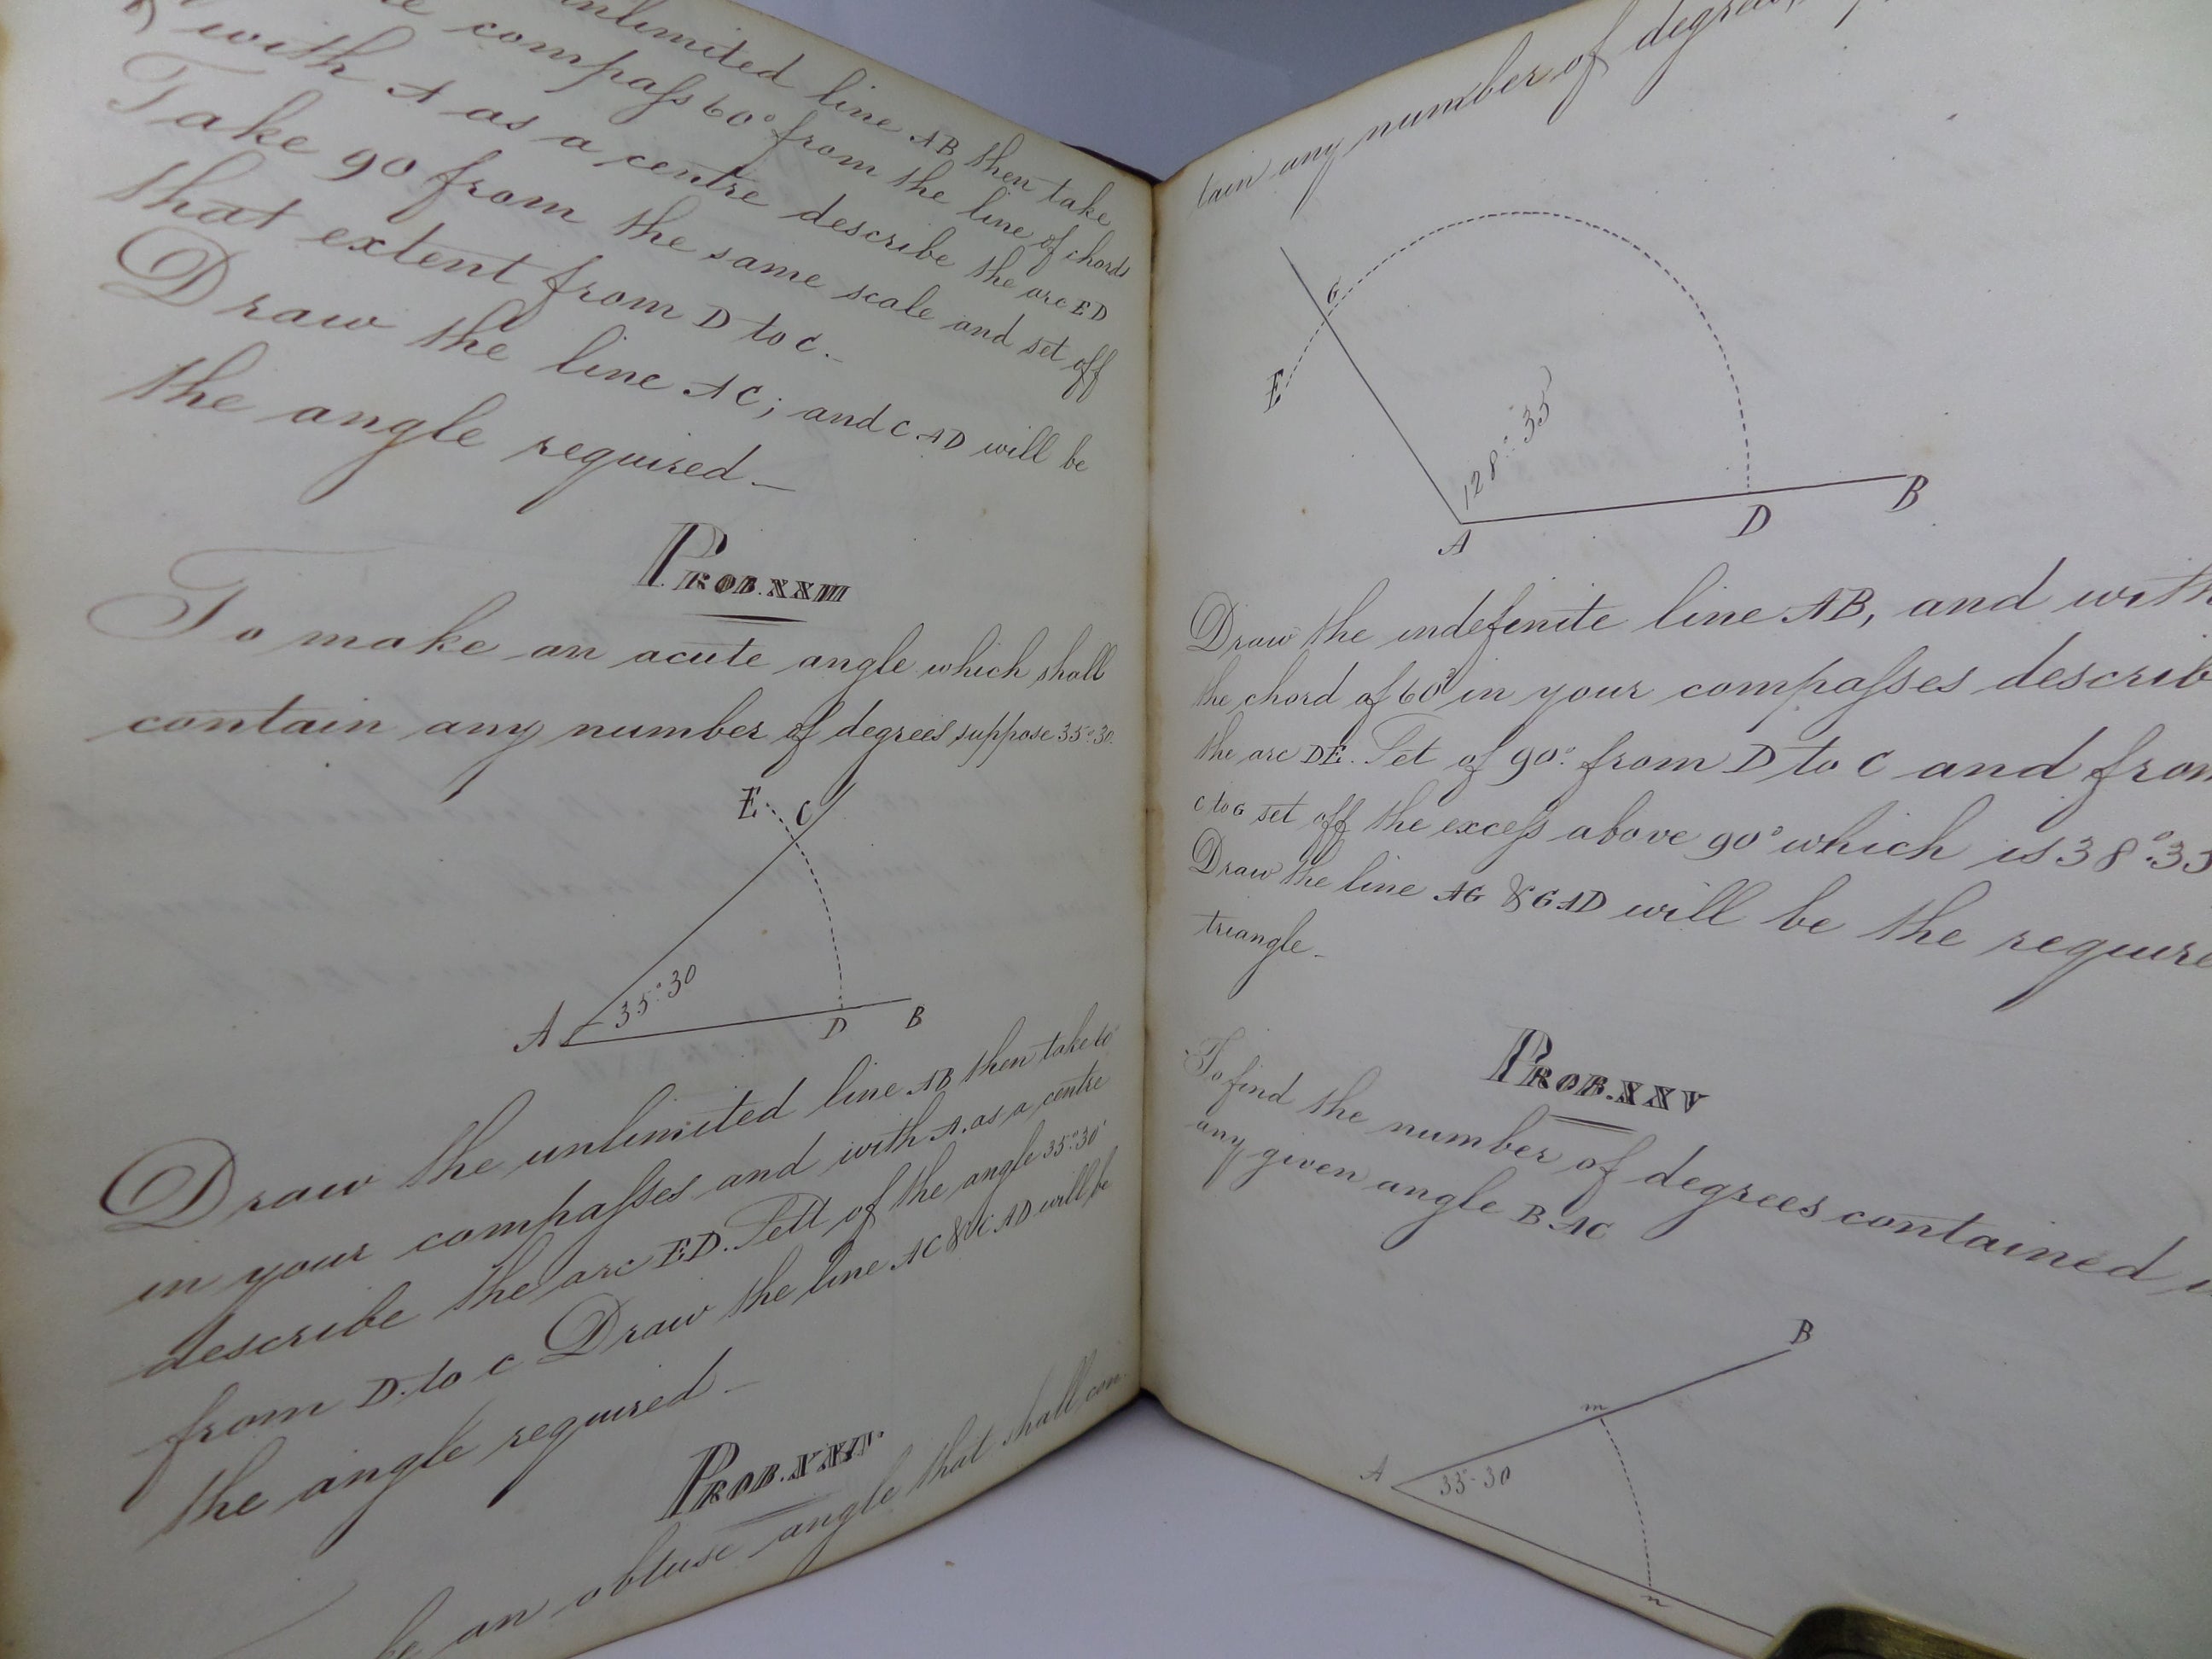 unlimited line AB then take
compaſs 60° from the line of chords
with A as a centre describe the arc ED
Take 90 from the same scale and set off
that extent from D to C.
Draw the line AC; and CAD will be
the angle required
PROB. XXIII
To make an acute angle which shall
contain any number of degrees suppose 35°:30
E C
A 35°:30 D B
Draw the unlimited line AB then take 60
in your compaſses and with A. as a centre
describe the arc ED. Sett of the angle 35°:30'
from D. to C Draw the line AC & CAD will be
the angle required
PROB. XXIV.
an obtuse angle that shall con
tain any number of degrees,
G
E
128°:35'
A D B
Draw the indefinite line AB, and with
the chord of 60° in your compaſses describ
the arc DE. Set of 90° from D to C and from
C to G set off the exceſs above 90° which is 38°:35
Draw the line AG & GAD will be the require
triangle.
PROB. XXV
To find the number of degrees contained
any given angle BAC
B
m
A 33°-30
n